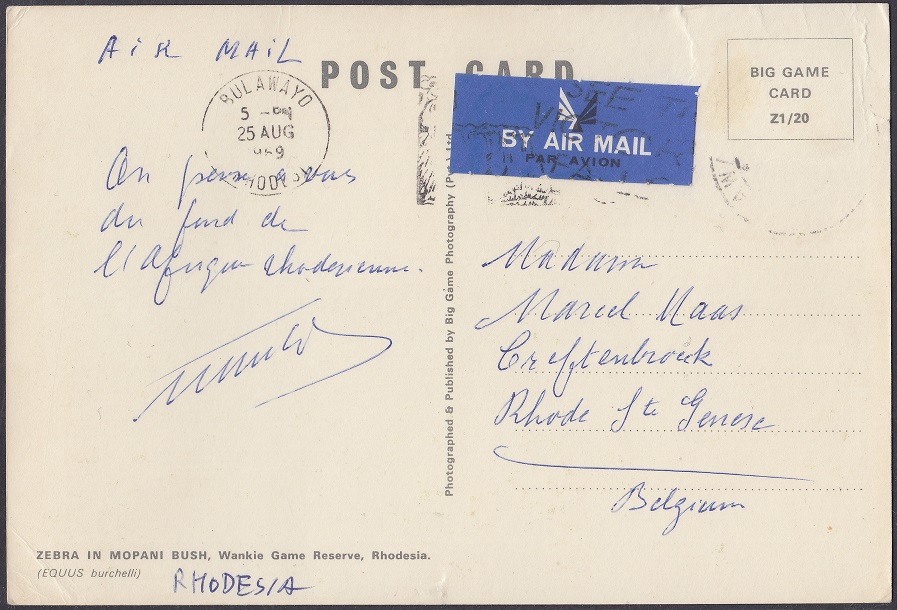 AIR MAIL
POST CARD
BULAWAYO
5 -PM
25 AUG
RHODESIA
BY AIR MAIL
PAR AVION
BIG GAME
CARD
Z1/20
On pense à vous
du fond de
l'Afrique rhodesienne.
Photographed & Published by Big Game Photography (Pvt) Ltd.
Madame
Marcel Maas
Rhode Ste Genese
Belgium
ZEBRA IN MOPANI BUSH, Wankie Game Reserve, Rhodesia.
(EQUUS burchelli)
RHODESIA